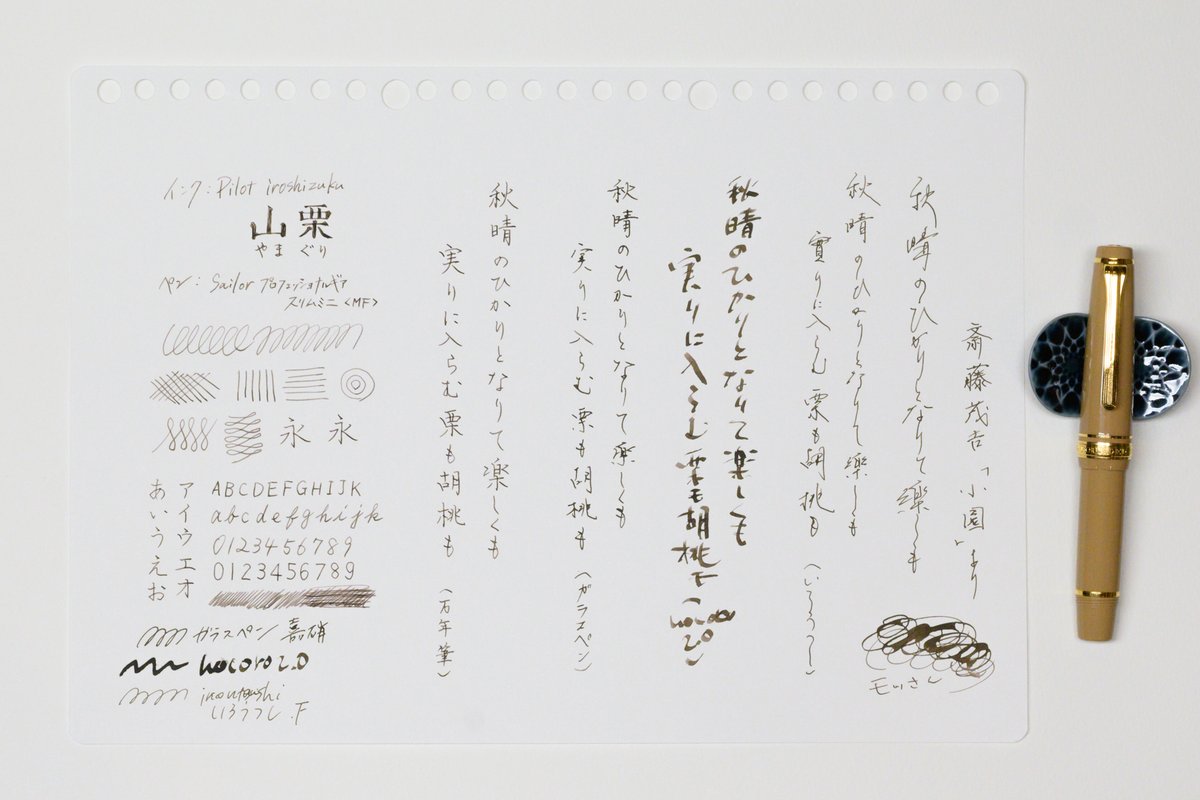 斎藤茂吉「小園」より
秋晴のひかりとなりて樂しくも
秋晴のひかりとなりて樂しくも
實りに入らむ栗も胡桃も
(いろうつし)
秋晴のひかりとなりて楽しくも
実りに入らむ栗も胡桃も
(hocoro
2.0)
秋晴のひかりとなりて楽しくも
実りに入らむ栗も胡桃も
(ガラスペン)
秋晴のひかりとなりて楽しくも
実りに入らむ栗も胡桃も
(万年筆)
インク:Pilot iroshizuku
山栗
やまぐり
ペン:Sailor プロフェッショナルギア
スリムミニ<MF>
永 永
アイウエオ
あいうえお
ABCDEFGHIJK
abcdefghijk
0123456789
0123456789
ガラスペン 嘉硝
hocoro 2.0
iroutsushi
いろうつし.F